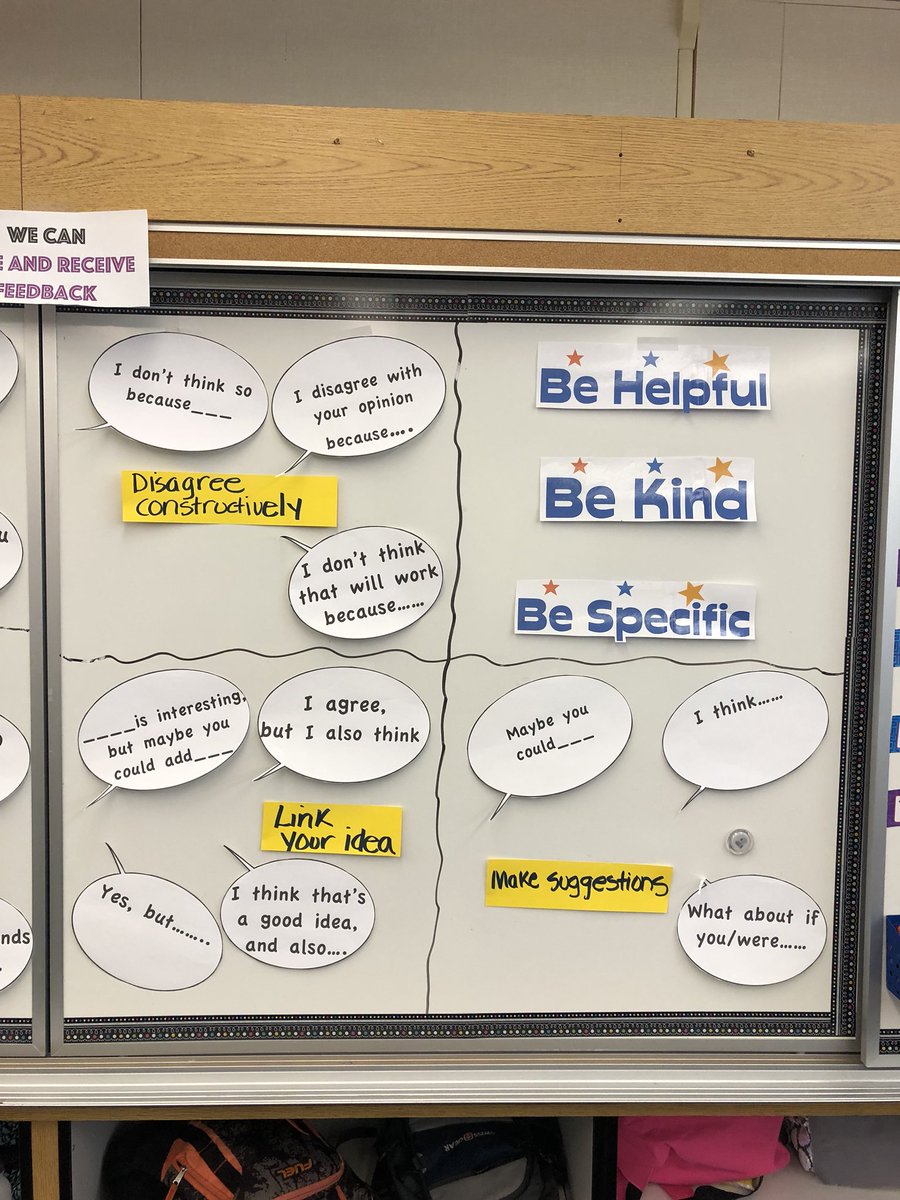 WE CAN
AND RECEIVE
FEEDBACK
I don't think so
because___
I disagree with
your opinion
because....
Disagree
constructively
I don't think
that will work
because......
Be Helpful
Be Kind
Be Specific
____is interesting,
but maybe you
could add___
I agree,
but I also think
Link
your idea
Yes, but.......
I think that's
a good idea,
and also....
Maybe you
could___
I think......
Make suggestions
What about if
you/were......
FUEL